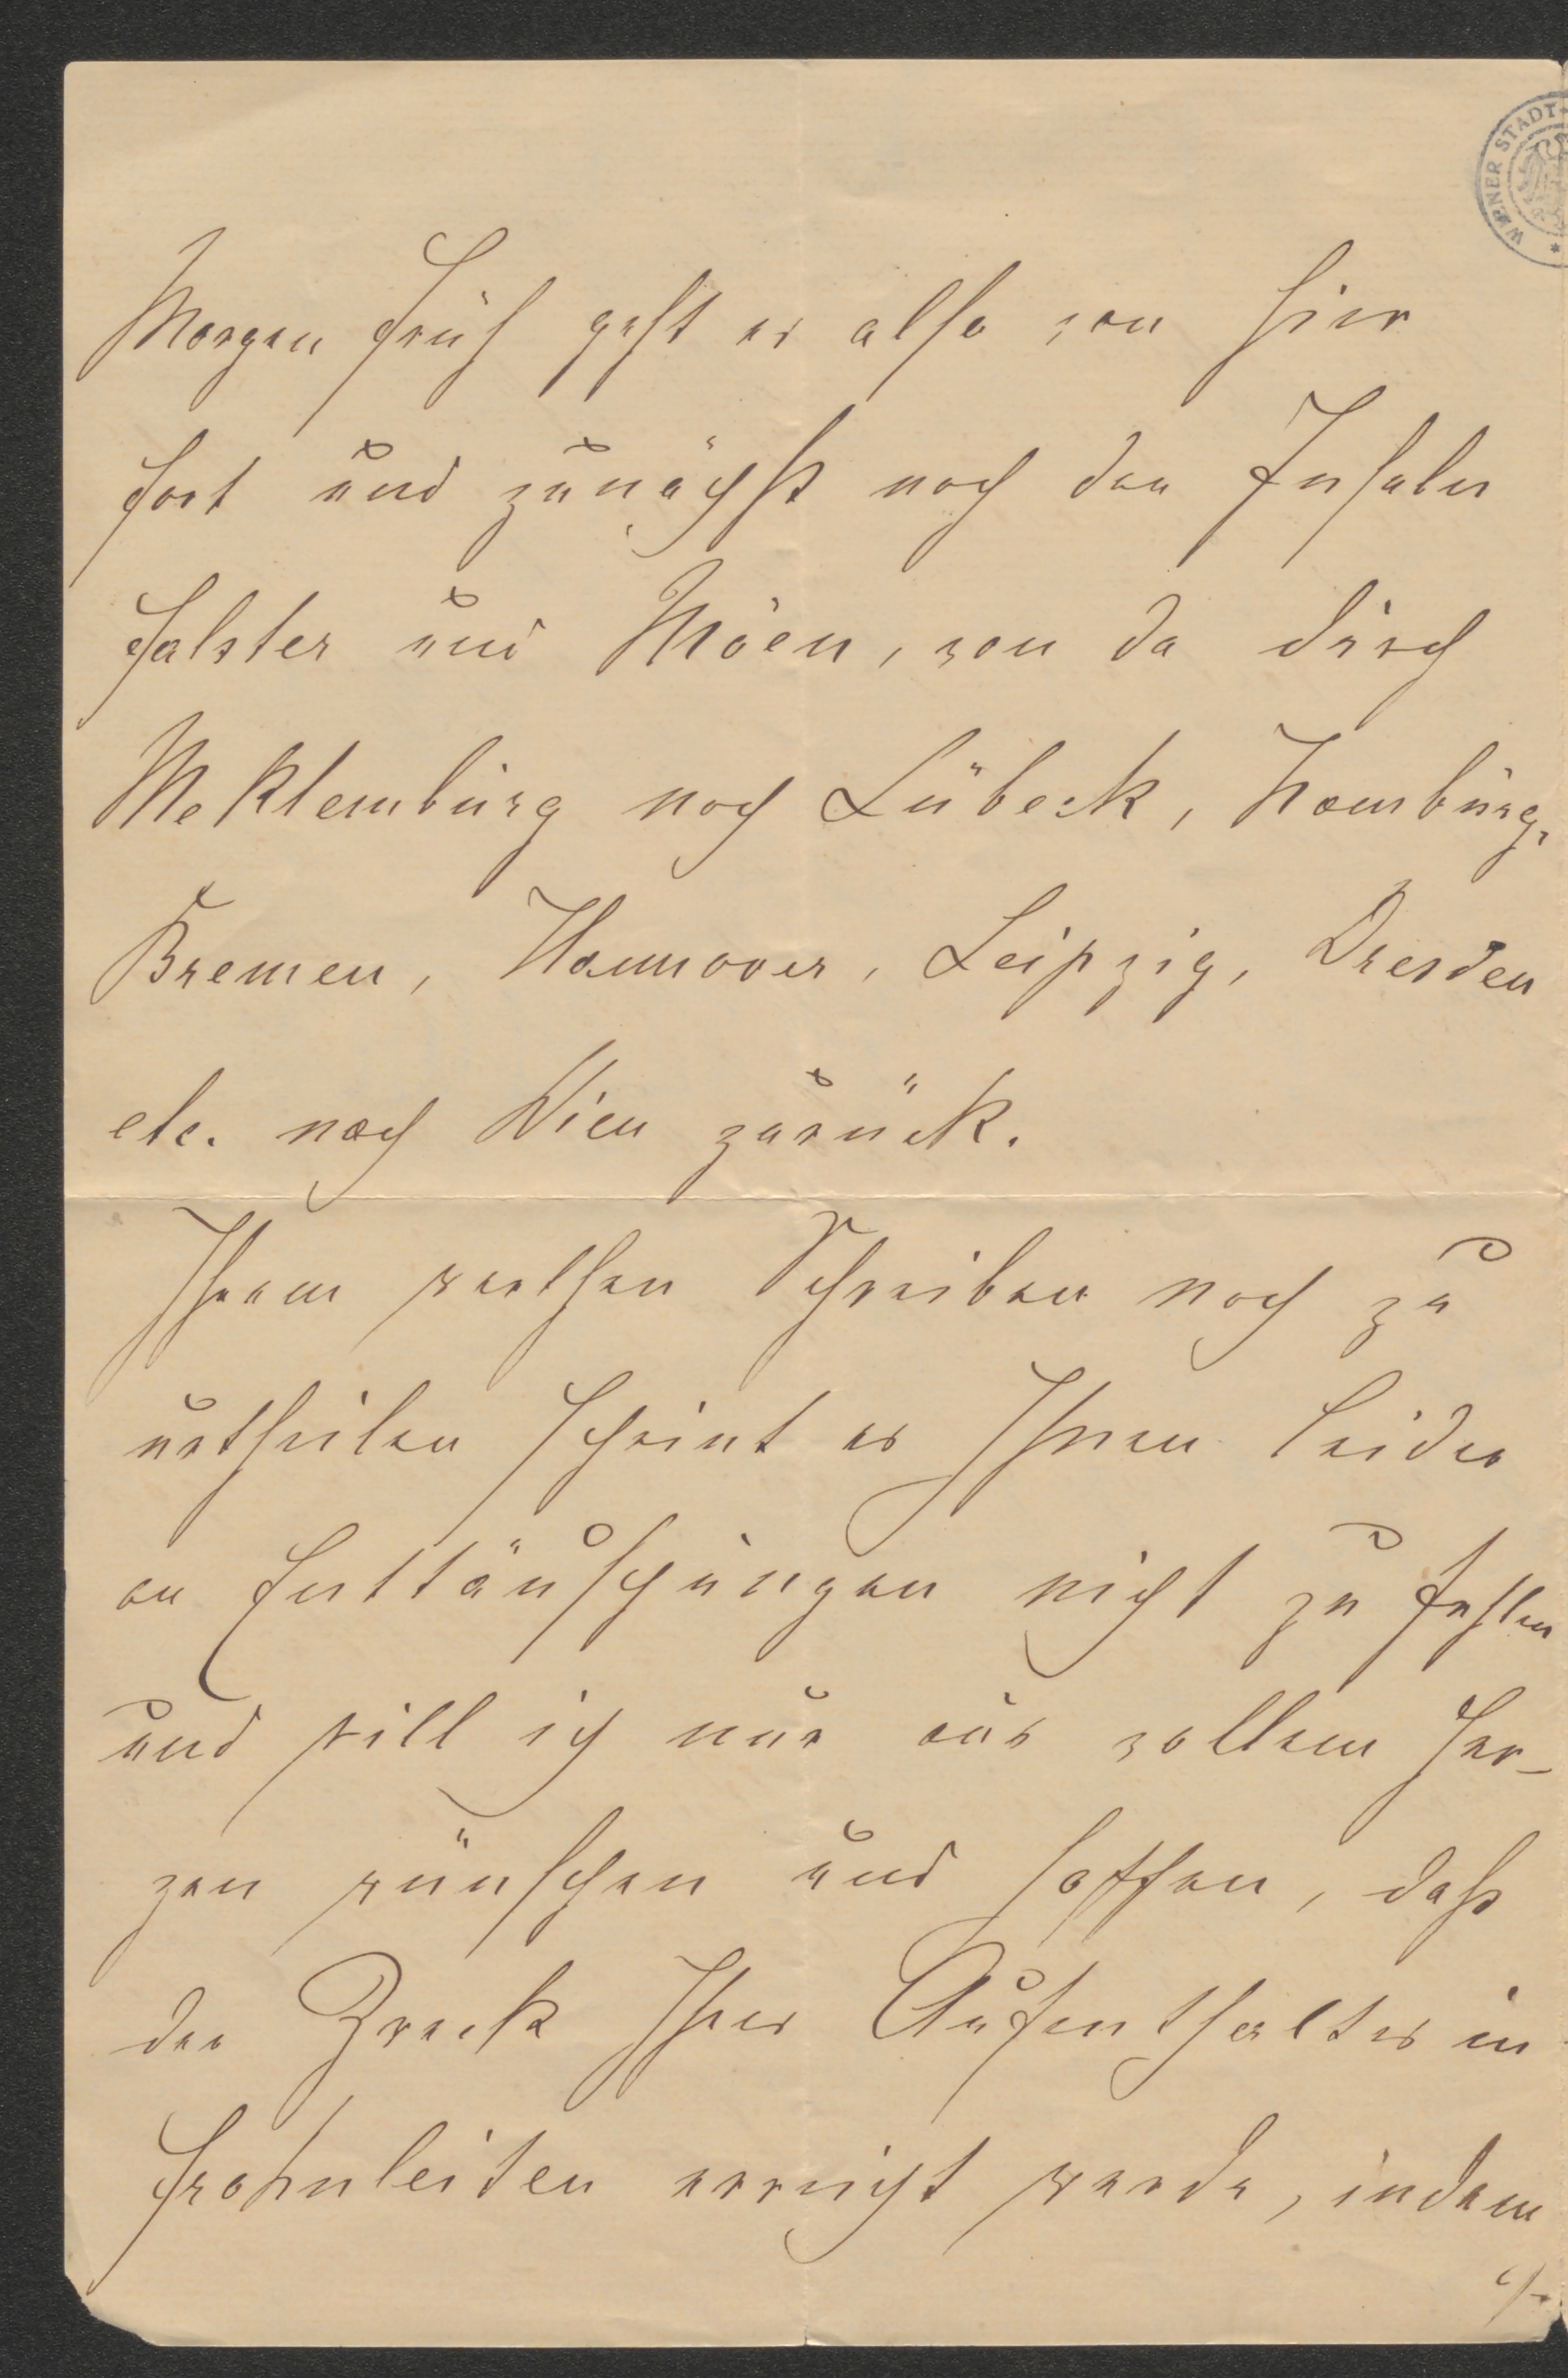 WIENER STADT
Morgen früh geht es also von hier
fort und zunächst nach den Inseln
Falster und Möen, von da durch
Meklemburg nach Lübeck, Hamburg,
Bremen, Hannover, Leipzig, Dresden
etc. nach Wien zurück.
Ihrem werthen Schreiben nach zu
urtheilen scheint es Ihnen leider
an Enttäuschungen nicht zu fehlen
und will ich nur aus vollem Her-
zen wünschen und hoffen, daß
der Zweck Ihres Aufenthaltes in
Frohnleiten erreicht werde, indem